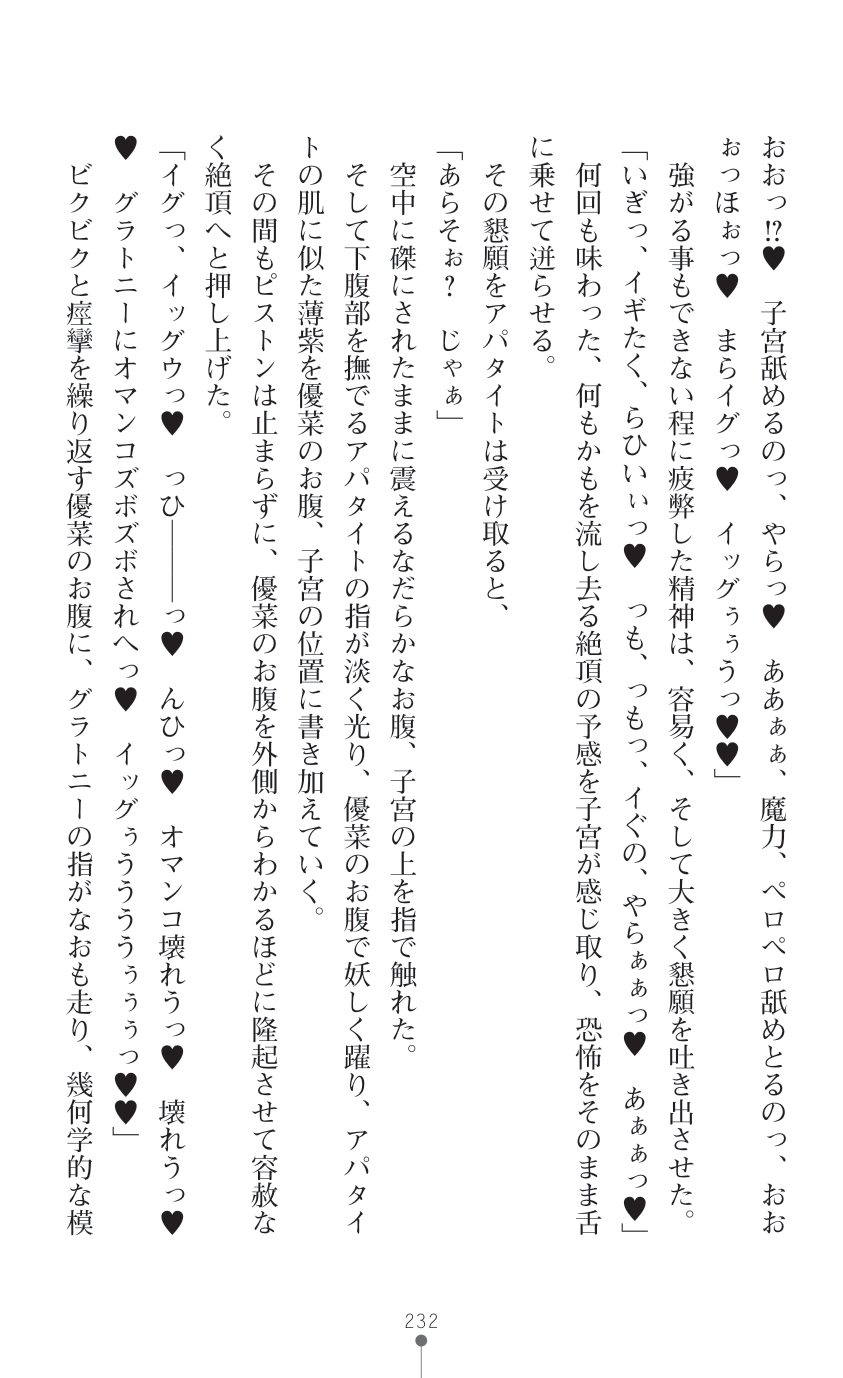 おおっ!?♥　子宮舐めるのっ、やらっ♥　ああぁぁ、魔力、ペロペロ舐めとるのっ、おお
ぉっほぉっ♥　まらイグっ♥　イッグぅぅうっ♥♥」
　強がる事もできない程に疲弊した精神は、容易く、そして大きく懇願を吐き出させた。
「いぎっ、イギたく、らひいぃっ♥　っも、っもっ、イぐの、やらぁぁっ♥　あぁぁっ♥」
　何回も味わった、何もかもを流し去る絶頂の予感を子宮が感じ取り、恐怖をそのまま舌
に乗せて迸らせる。
　その懇願をアパタイトは受け取ると、
「あらそぉ？　じゃぁ」
　空中に磔にされたままに震えるなだらかなお腹、子宮の上を指で触れた。
　そして下腹部を撫でるアパタイトの指が淡く光り、優菜のお腹で妖しく躍り、アパタイ
トの肌に似た薄紫を優菜のお腹、子宮の位置に書き加えていく。
　その間もピストンは止まらずに、優菜のお腹を外側からわかるほどに隆起させて容赦な
く絶頂へと押し上げた。
「イグっ、イッグウっ♥　っひ―――っ♥　んひっ♥　オマンコ壊れうっ♥　壊れうっ♥
♥　グラトニーにオマンコズボズボされへっ♥　イッグぅううううぅぅぅっ♥♥」
　ビクビクと痙攣を繰り返す優菜のお腹に、グラトニーの指がなおも走り、幾何学的な模
232